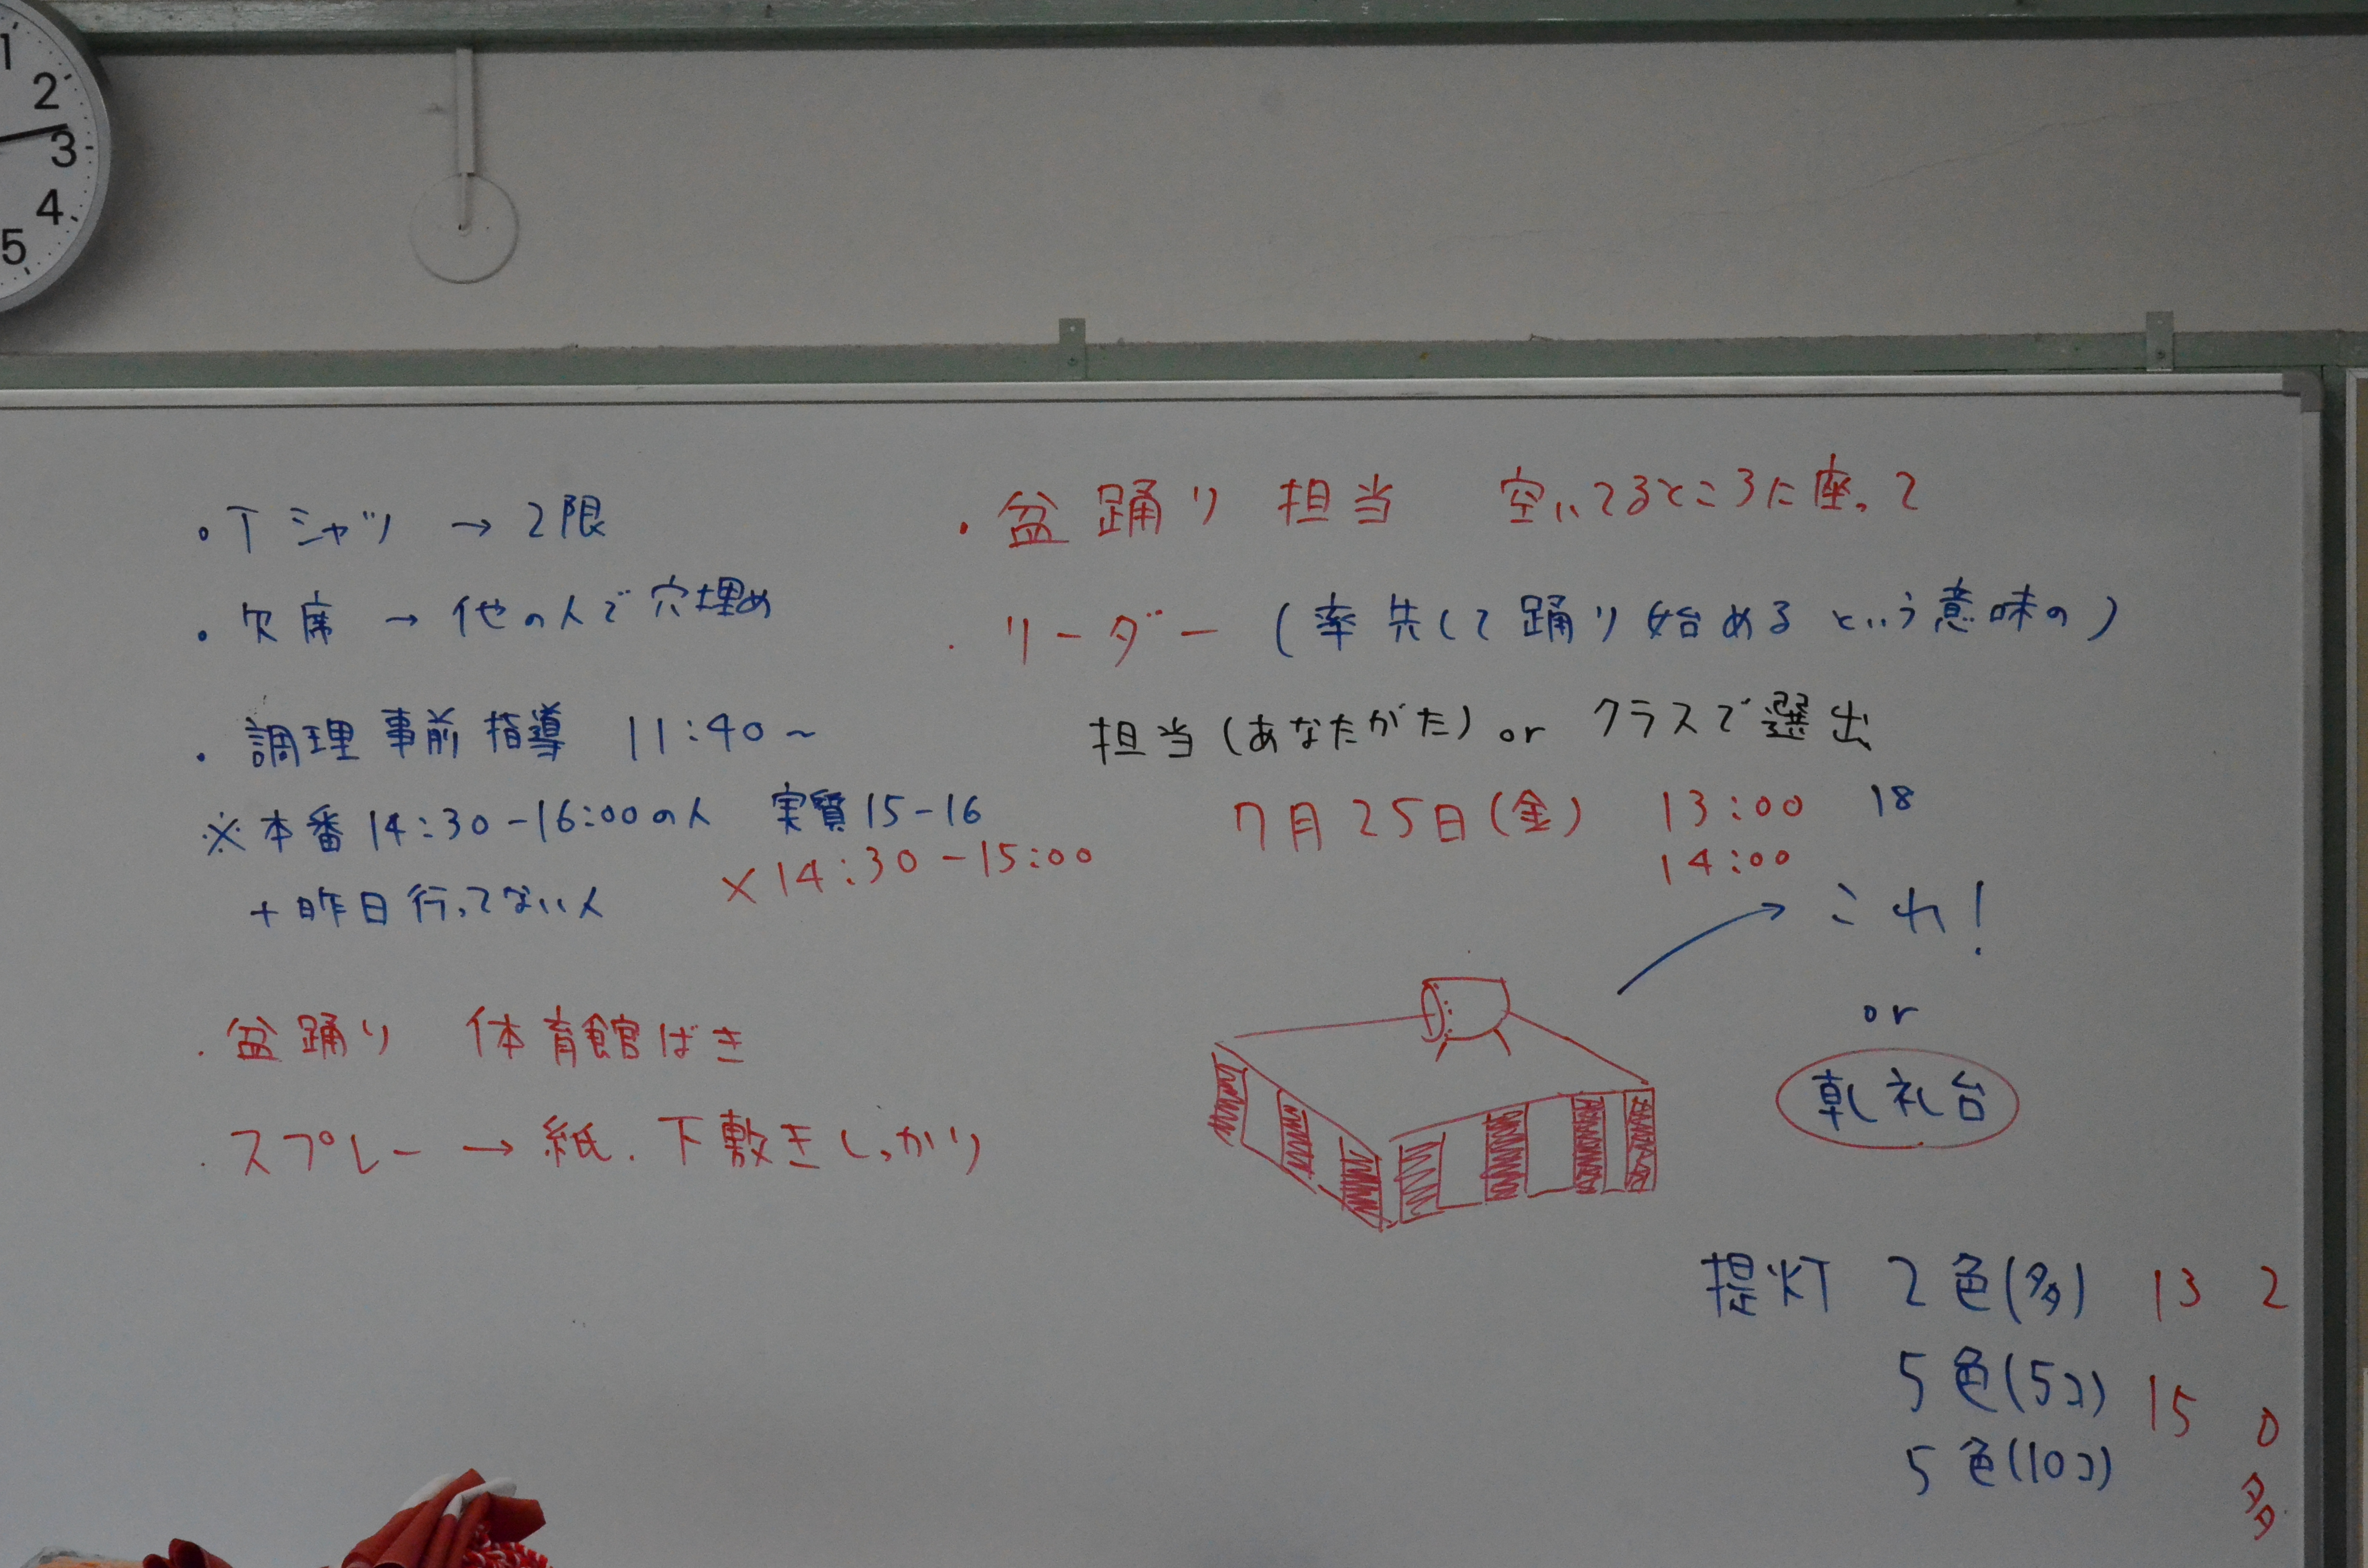 1
2
3
4
5
・Tシャツ → 2限
・欠席 → 他の人で穴埋め
・調理事前指導 11:40～
※本番14:30-16:00の人 実質15-16
×14:30-15:00
+昨日行ってない人
・盆踊り 体育館ばき
・スプレー → 紙.下敷きしっかり
・盆踊り担当 空いてるところに座って
・リーダー (率先して踊り始めるという意味の)
担当(あなたがた) or クラスで選出
7月25日(金) 13:00 18
14:00
これ!
or
朝礼台
提灯 2色(多) 13 2
5色(5コ) 15 0
5色(10コ) 多